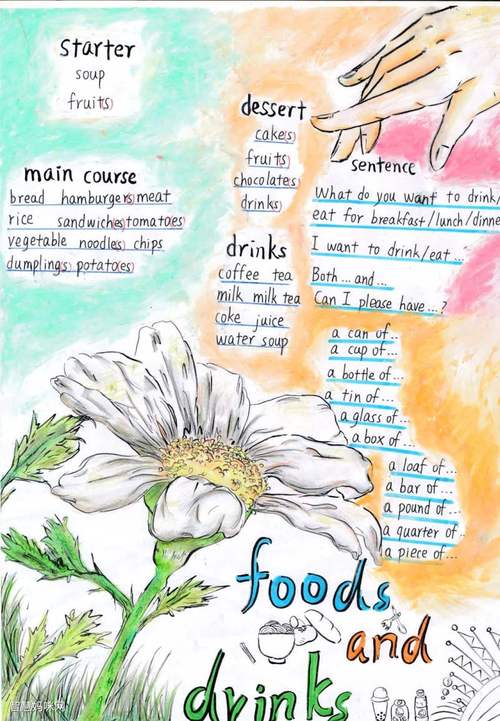 starter
soup
fruit(s)
main course
bread hamburger(s) meat
rice sandwich(es) tomato(es)
vegetable noodle(s) chips
dumpling(s) potato(es)
dessert
cake(s)
fruit(s)
chocolate(s)
drink(s)
drinks
coffee tea
milk milk tea
coke juice
water soup
sentence
What do you want to drink/
eat for breakfast/lunch/dinne
I want to drink/eat ...
Both ... and ...
Can I please have ... ?
a can of...
a cup of...
a bottle of...
a tin of...
a glass of...
a box of...
a loaf of...
a bar of...
a pound of...
a quarter of..
a piece of...
foods
and
drinks
智慧妈咪网